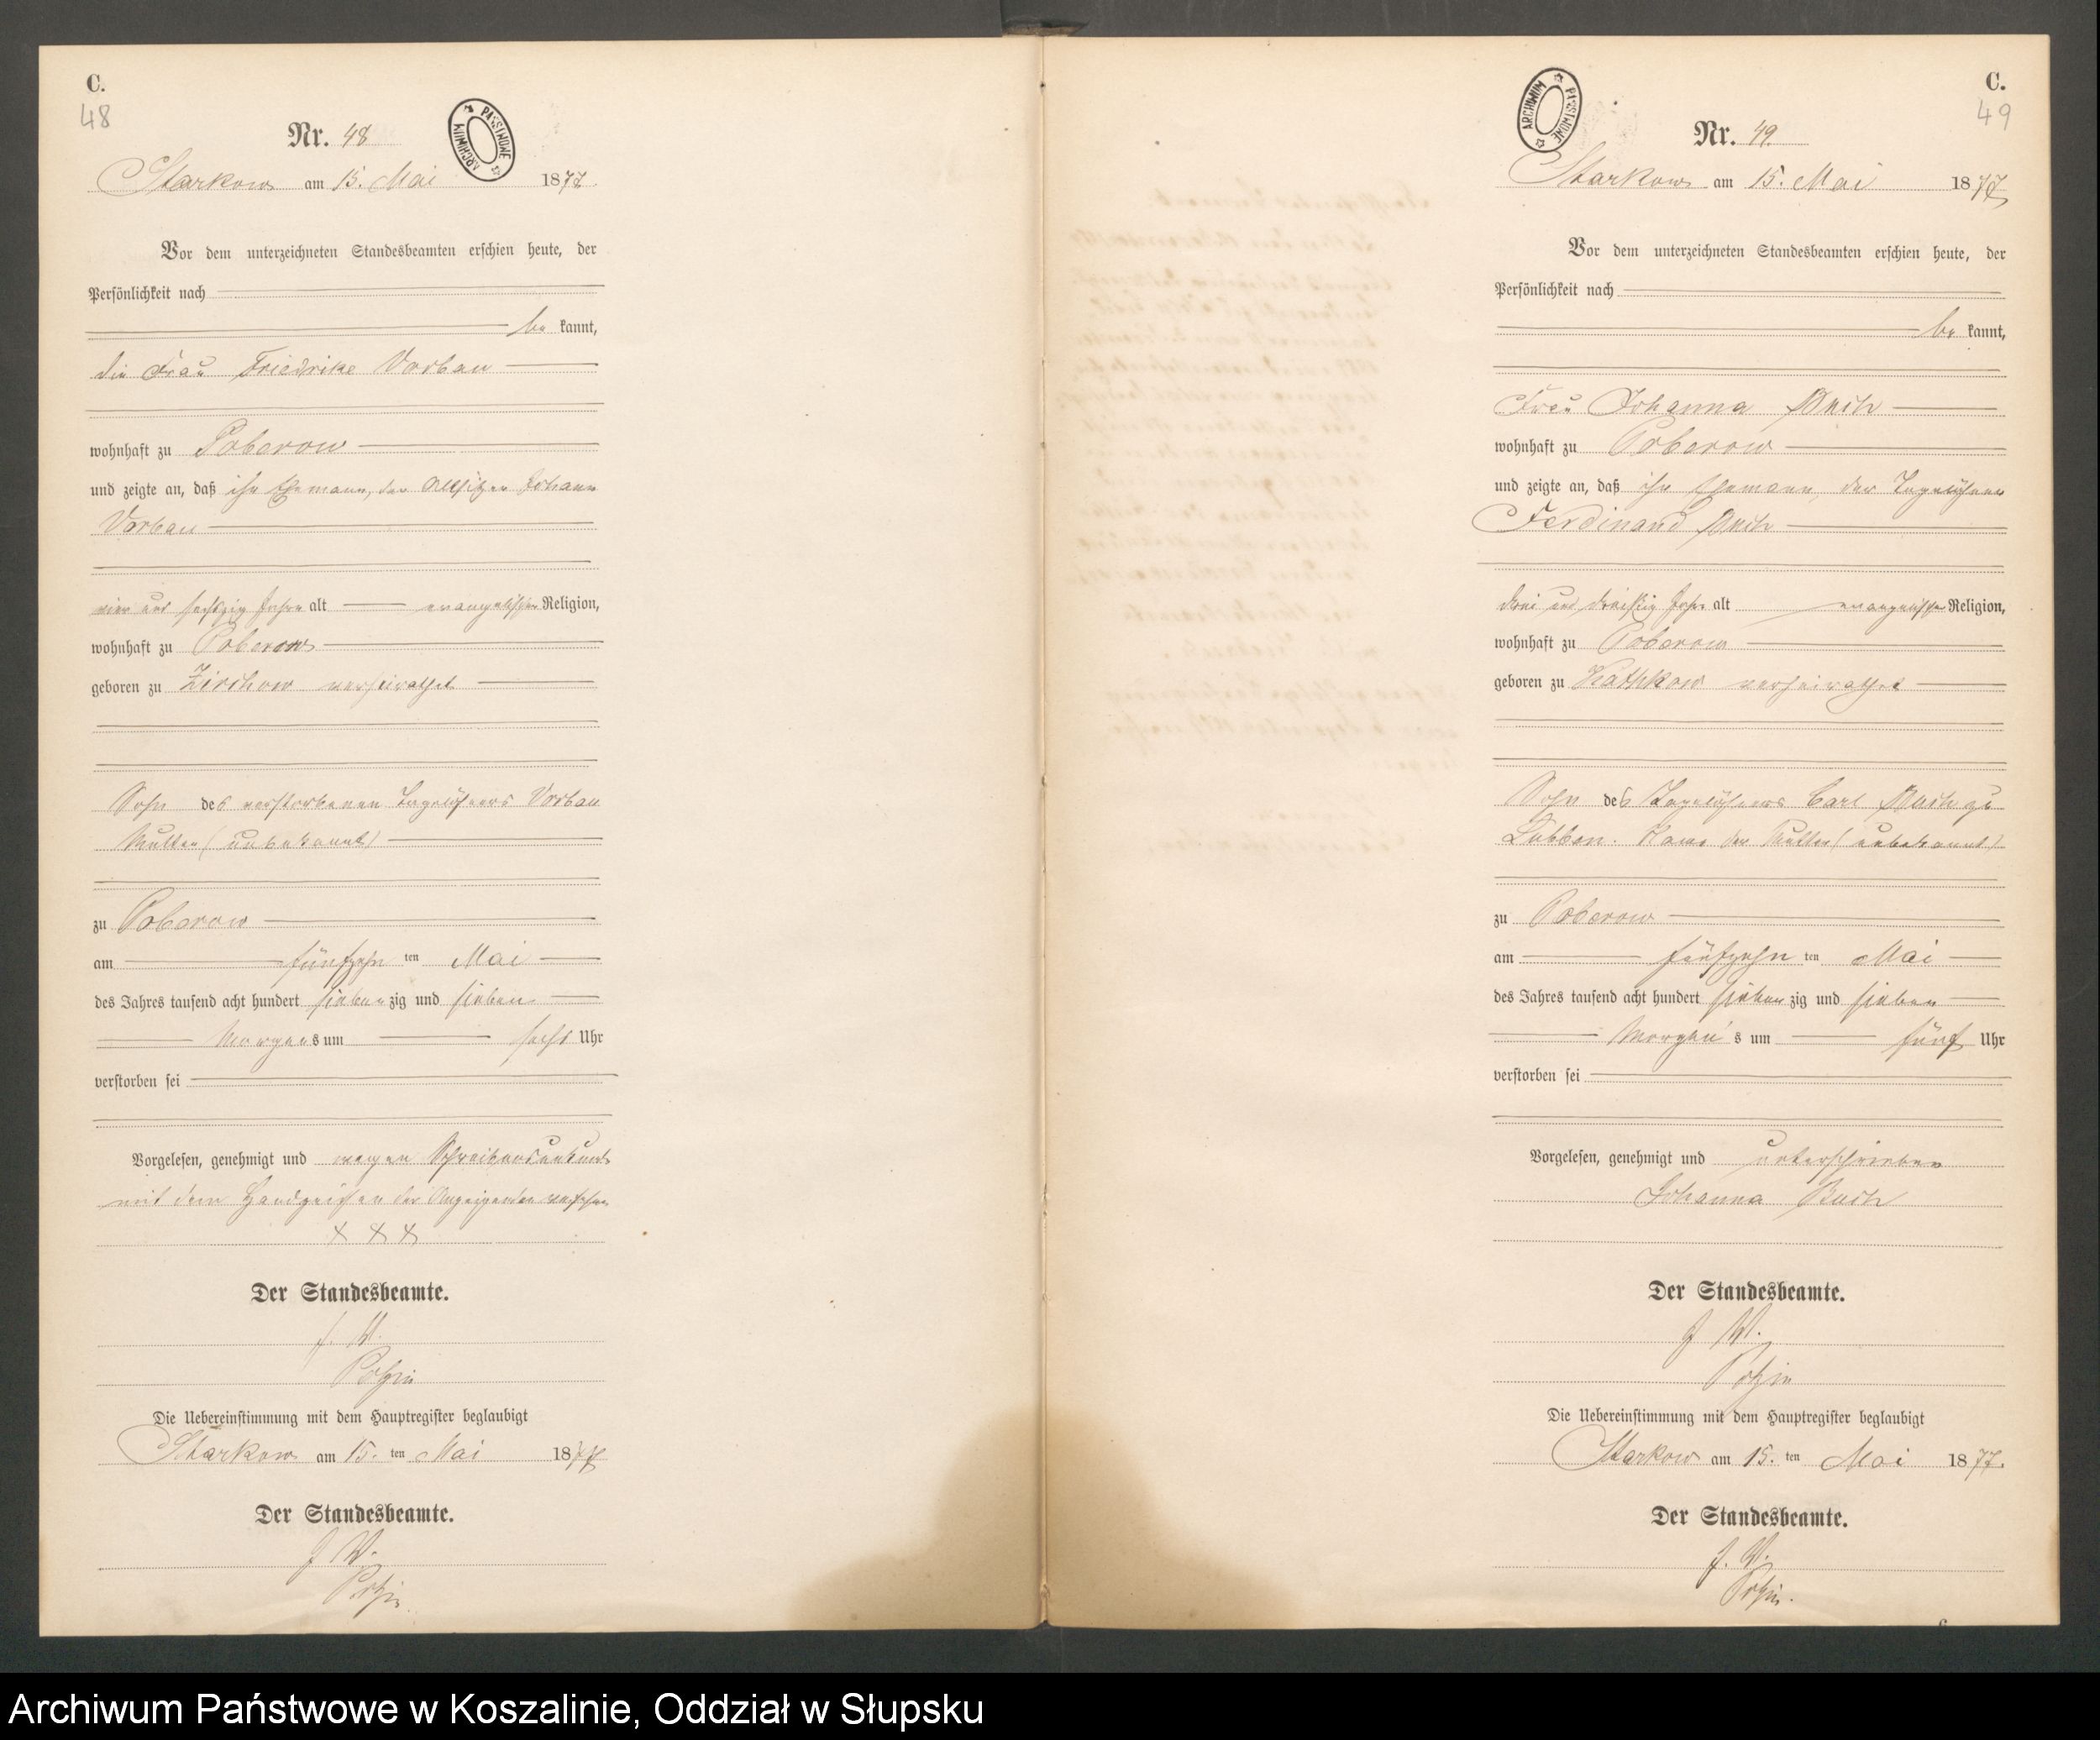 C.
48
Nr. 48
ARCHIWUM PAŃSTWOWE
Starkow am 15. Mai 1877.
Vor dem unterzeichneten Standesbeamten erschien heute, der
Persönlichkeit nach
be kannt,
die Frau Friedrike Vorbau
wohnhaft zu Poberow
und zeigte an, daß ihr Ehemann, der Altsitzer Johann
Vorbau
vier und sechszig Jahre alt evangelischer Religion,
wohnhaft zu Poberow
geboren zu Zirchow verheirathet
Sohn des verstorbenen Tagelöhners Vorbau
Mutter (unbekannt)
zu Poberow
am fünfzehn ten Mai
des Jahres tausend acht hundert sieben zig und sieben
Morgens um sechs Uhr
verstorben sei
Vorgelesen, genehmigt und wegen Schreibensunkunde
mit dem Handzeichen der Anzeigenden versehen
X X X
Der Standesbeamte.
J. V.
Die Uebereinstimmung mit dem Hauptregister beglaubigt
Starkow am 15. ten Mai 1877
Der Standesbeamte.
J. V.
C.
49
Nr. 49.
ARCHIWUM PAŃSTWOWE
Starkow am 15. Mai 1877
Vor dem unterzeichneten Standesbeamten erschien heute, der
Persönlichkeit nach
be kannt,
Frau Johanna Busch
wohnhaft zu Poberow
und zeigte an, daß ihr Ehemann, der Tagelöhner
Ferdinand Busch
drei und dreißig Jahre alt evangelischer Religion,
wohnhaft zu Poberow
geboren zu Kathkow verheirathet
Sohn des Tagelöhners Carl Busch zu
Lübben. Name der Mutter (unbekannt)
zu Poberow
am fünfzehn ten Mai
des Jahres tausend acht hundert sieben zig und sieben
Morgen's um fünf Uhr
verstorben sei
Vorgelesen, genehmigt und unterschrieben
Johanna Busch
Der Standesbeamte.
J. V.
Die Uebereinstimmung mit dem Hauptregister beglaubigt
Starkow am 15. ten Mai 1877.
Der Standesbeamte.
J. V.
Archiwum Państwowe w Koszalinie, Oddział w Słupsku